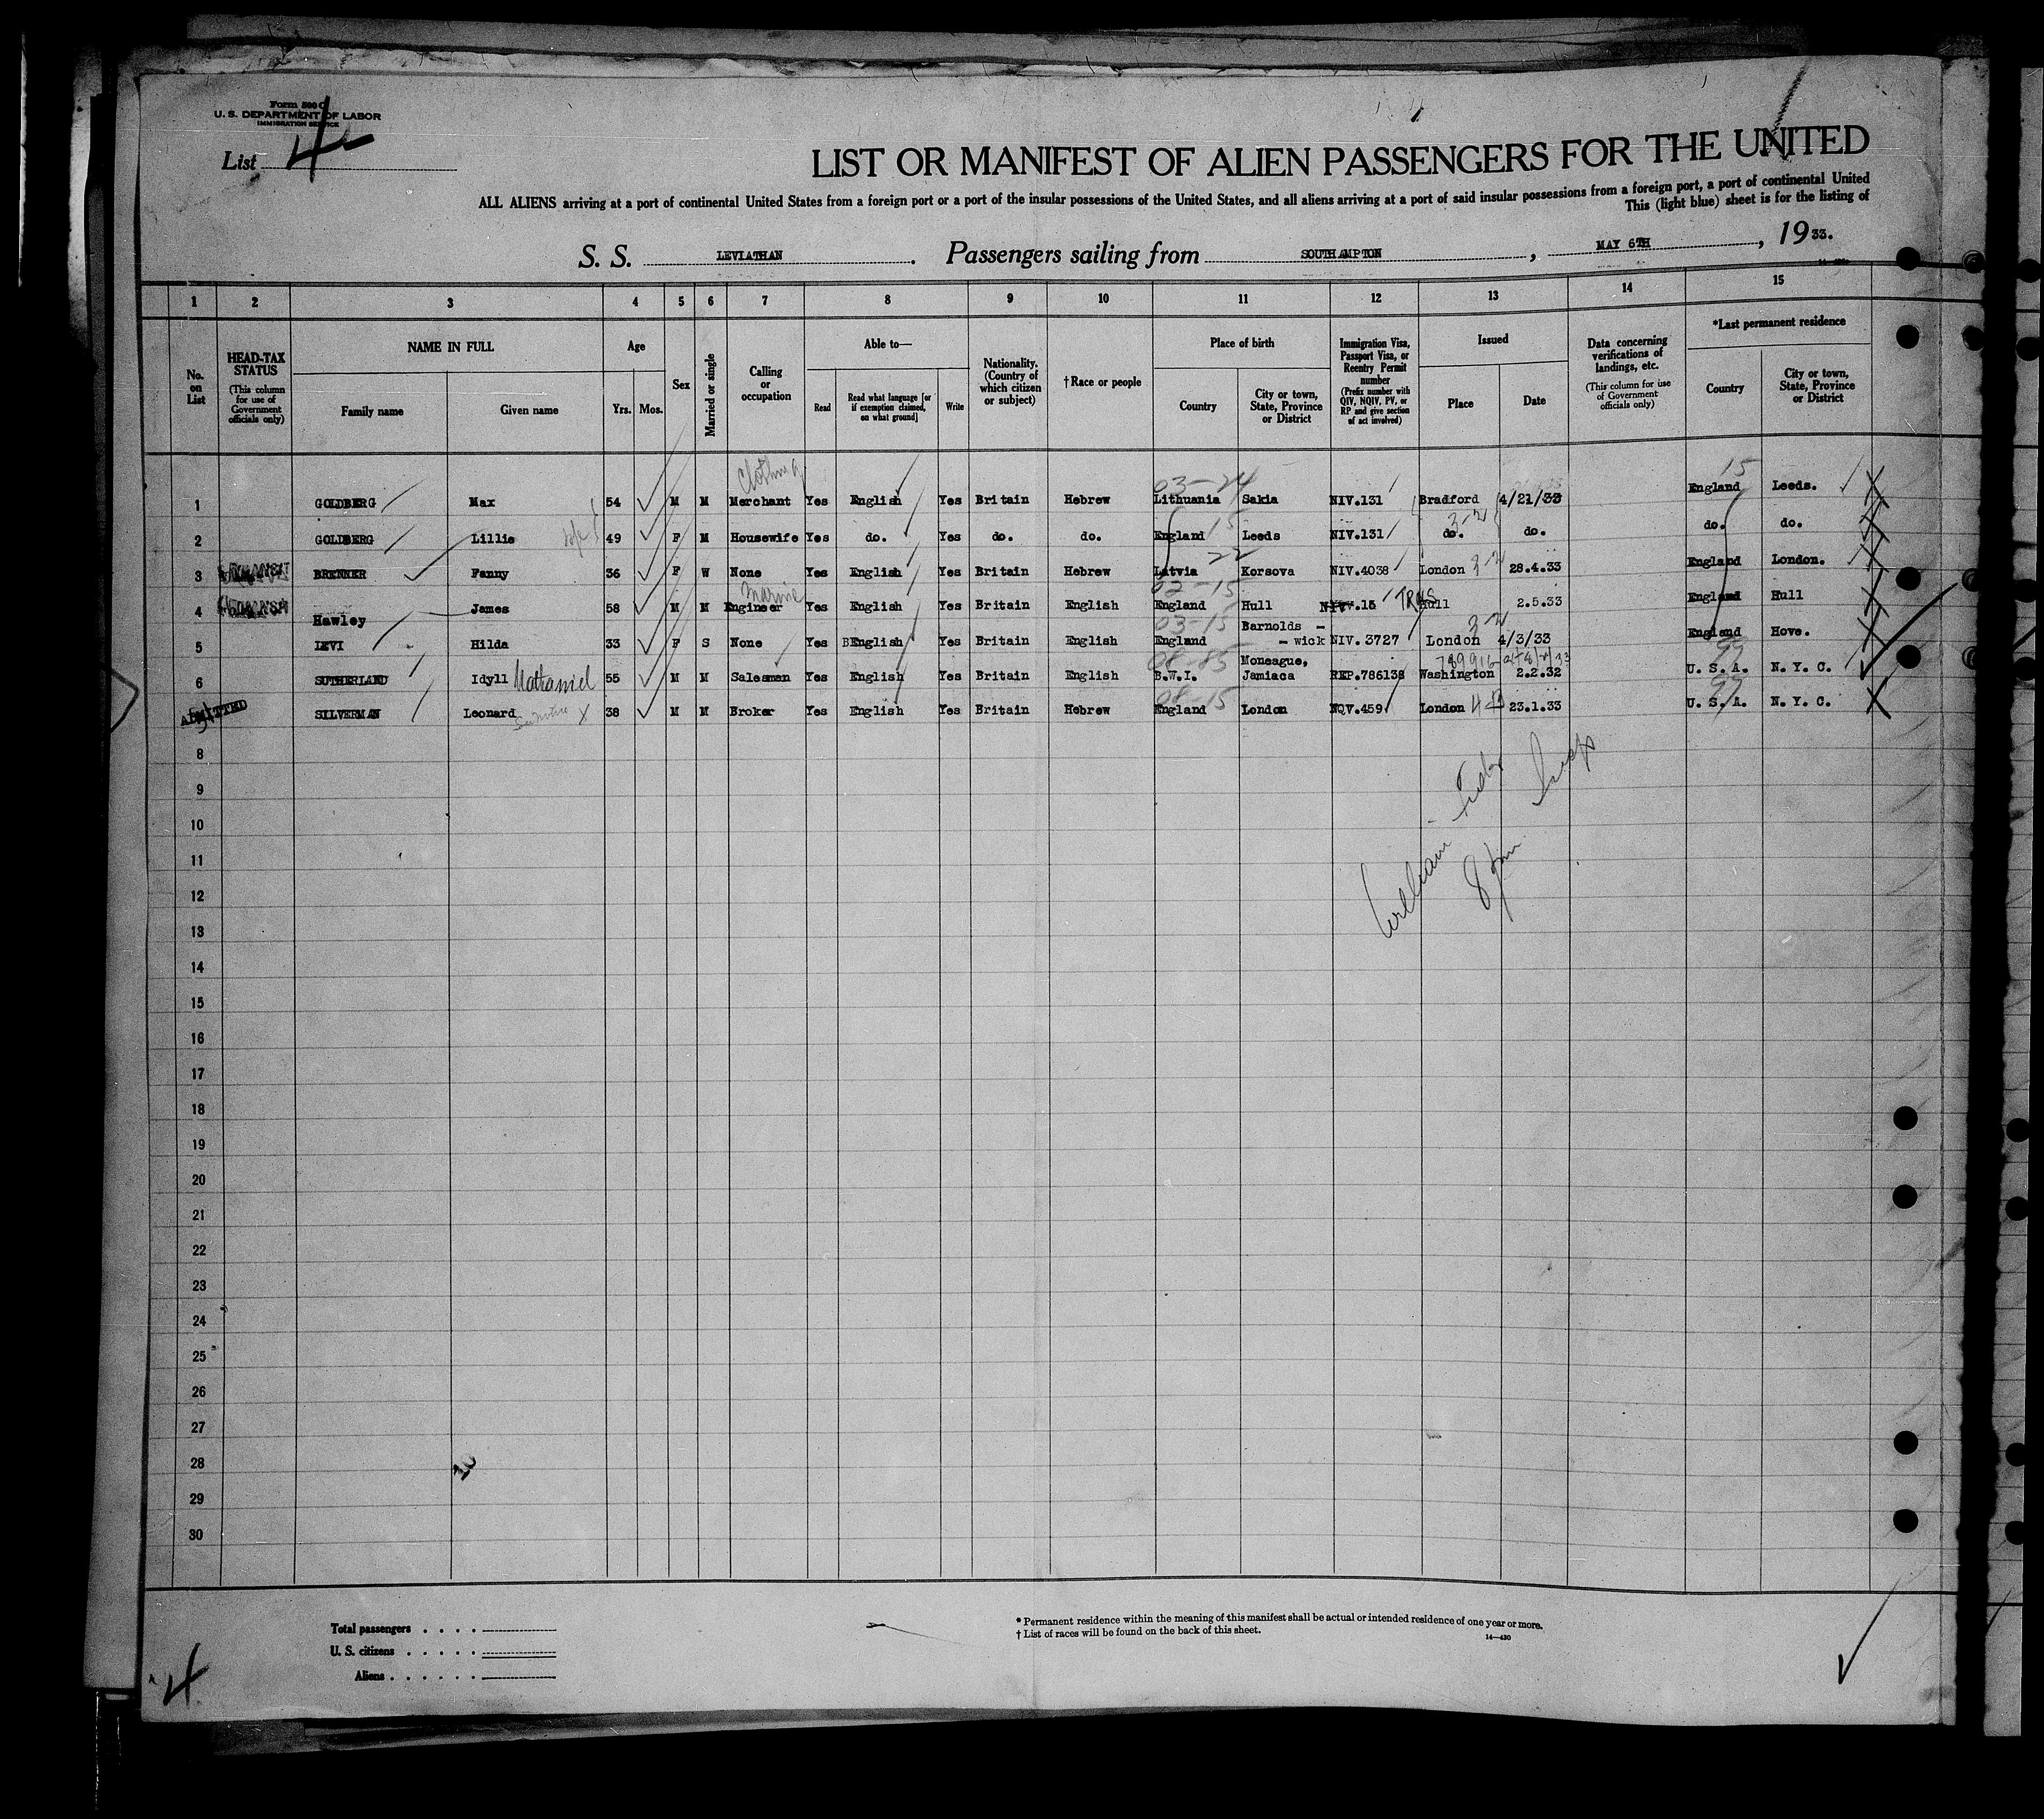 Form 500 C
U. S. DEPARTMENT OF LABOR
IMMIGRATION SERVICE
List 4
LIST OR MANIFEST OF ALIEN PASSENGERS FOR THE UNITED
ALL ALIENS arriving at a port of continental United States from a foreign port or a port of the insular possessions of the United States, and all aliens arriving at a port of said insular possessions from a foreign port, a port of continental United
This (light blue) sheet is for the listing of
S. S. LEVIATHAN. Passengers sailing from SOUTHAMPTON, MAY 6TH, 1933.
1 2 3 4 5 6 7 8 9 10 11 12 13 14 15
No. on List
HEAD-TAX STATUS (This column for use of Government officials only)
NAME IN FULL
Family name Given name
Age
Yrs. Mos.
Sex
Married or single
Calling or occupation
Able to—
Read Read what language [or if exemption claimed, on what ground] Write
Nationality. (Country of which citizen or subject)
†Race or people
Place of birth
Country City or town, State, Province or District
Immigration Visa, Passport Visa, or Reentry Permit number (Prefix number with QIV, NQIV, PV, or RP and give section of act involved)
Issued
Place Date
Data concerning verifications of landings, etc. (This column for use of Government officials only)
*Last permanent residence
Country City or town, State, Province or District
Clothing 03-24 15
1 GOLDBERG Max 54 M M Merchant Yes English Yes Britain Hebrew Lithuania Sakia NIV.131 Bradford 4/21/33 England Leeds.
15 3-2
2 GOLDBERG Lillie 49 F M Housewife Yes do. Yes do. do. England Leeds NIV.131 do. do. do. do.
22
3 BRENNER Fanny 36 F W None Yes English Yes Britain Hebrew Latvia Korsova NIV.4038 London 3-2 28.4.33 England London.
Marine 02-15
4 Hawley James 58 M M Engineer Yes English Yes Britain English England Hull NIV.15 TRNS Hull 2.5.33 England Hull
03-15 Barnolds - 3-2
5 LEVI Hilda 33 F S None Yes English Yes Britain English England - wick NIV. 3727 London 4/3/33 England Hove.
08-85 Moneague, 789916 99
6 SUTHERLAND Idyll Nathaniel 55 M M Salesman Yes English Yes Britain English B.W.I. Jamiaca REP.786138 Washington 2.2.32 U. S. A. N. Y. C.
08-15 99
ADMITTED SILVERMAN Leonard 38 M M Broker Yes English Yes Britain Hebrew England London NQV.459 London 4 23.1.33 U. S. A. N. Y. C.
8
9
10
11
12
13
14
15
16
17
18
19
20
21
22
23
24
25
26
27
28
29
30
William
Total passengers
U. S. citizens
Aliens
* Permanent residence within the meaning of this manifest shall be actual or intended residence of one year or more.
† List of races will be found on the back of this sheet.
14—430
4